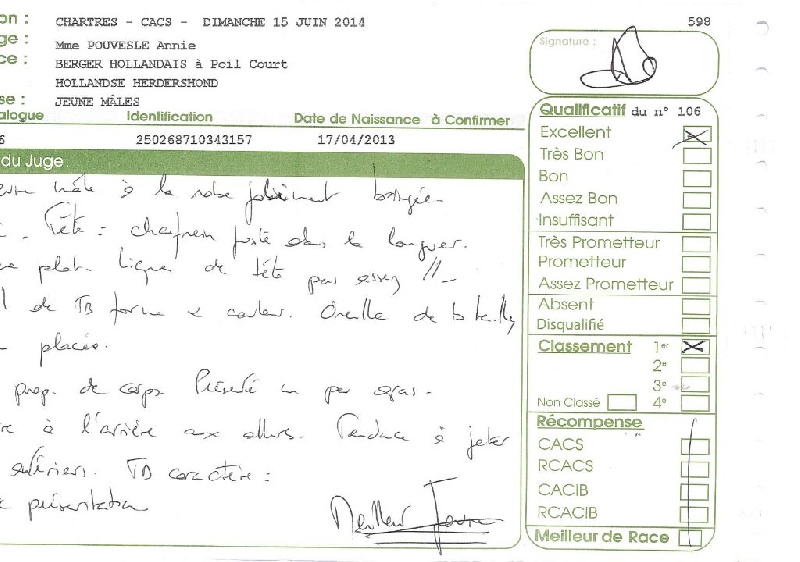 on : CHARTRES - CACS - DIMANCHE 15 JUIN 2014 598
ge : Mme POUVESLE Annie
ce : BERGER HOLLANDAIS à Poil Court
HOLLANDSE HERDERSHOND
se : JEUNE MÂLES
alogue Identification Date de Naissance à Confirmer
6 250268710343157 17/04/2013
du Juge
Signature :
Qualificatif du n° 106
Excellent
Très Bon
Bon
Assez Bon
Insuffisant
Très Prometteur
Prometteur
Assez Prometteur
Absent
Disqualifié
Classement 1er
2e
3e
Non Classé 4e
Récompense
CACS
RCACS
CACIB
RCACIB
Meilleur de Race
mâle à la robe joliment bringée
Tête = chanfrein juste dans la longueur.
plat. Ligne de tête pas assez //
de TB forme e couleur. Oreille de tb
placée.
prop. de corps Présenté un peu gras.
à l'arrière aux allures. Tendance à jeter
antérieurs. TB caractère :
présentation
Meilleur Jeune